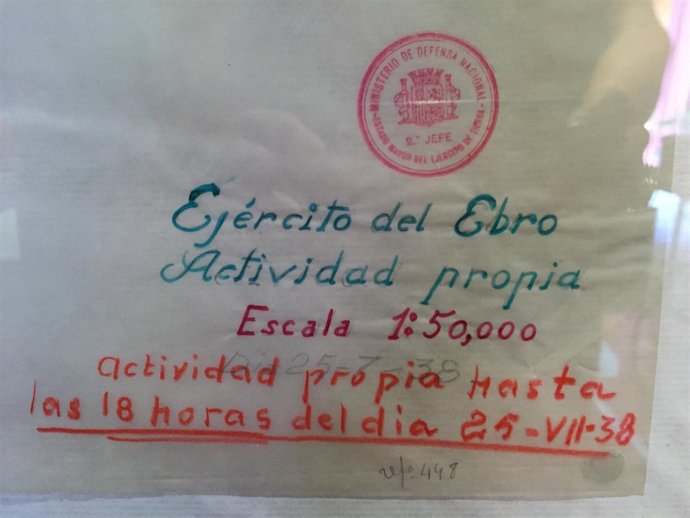 MINISTERIO DE DEFENSA NACIONAL
ESTADO MAYOR DEL EJERCITO DE TIERRA
2.º JEFE
Ejército del Ebro
Actividad propia
Escala 1:50,000
Día 25-7-38
actividad propia hasta
las 18 horas del dia 25-VII-38
448